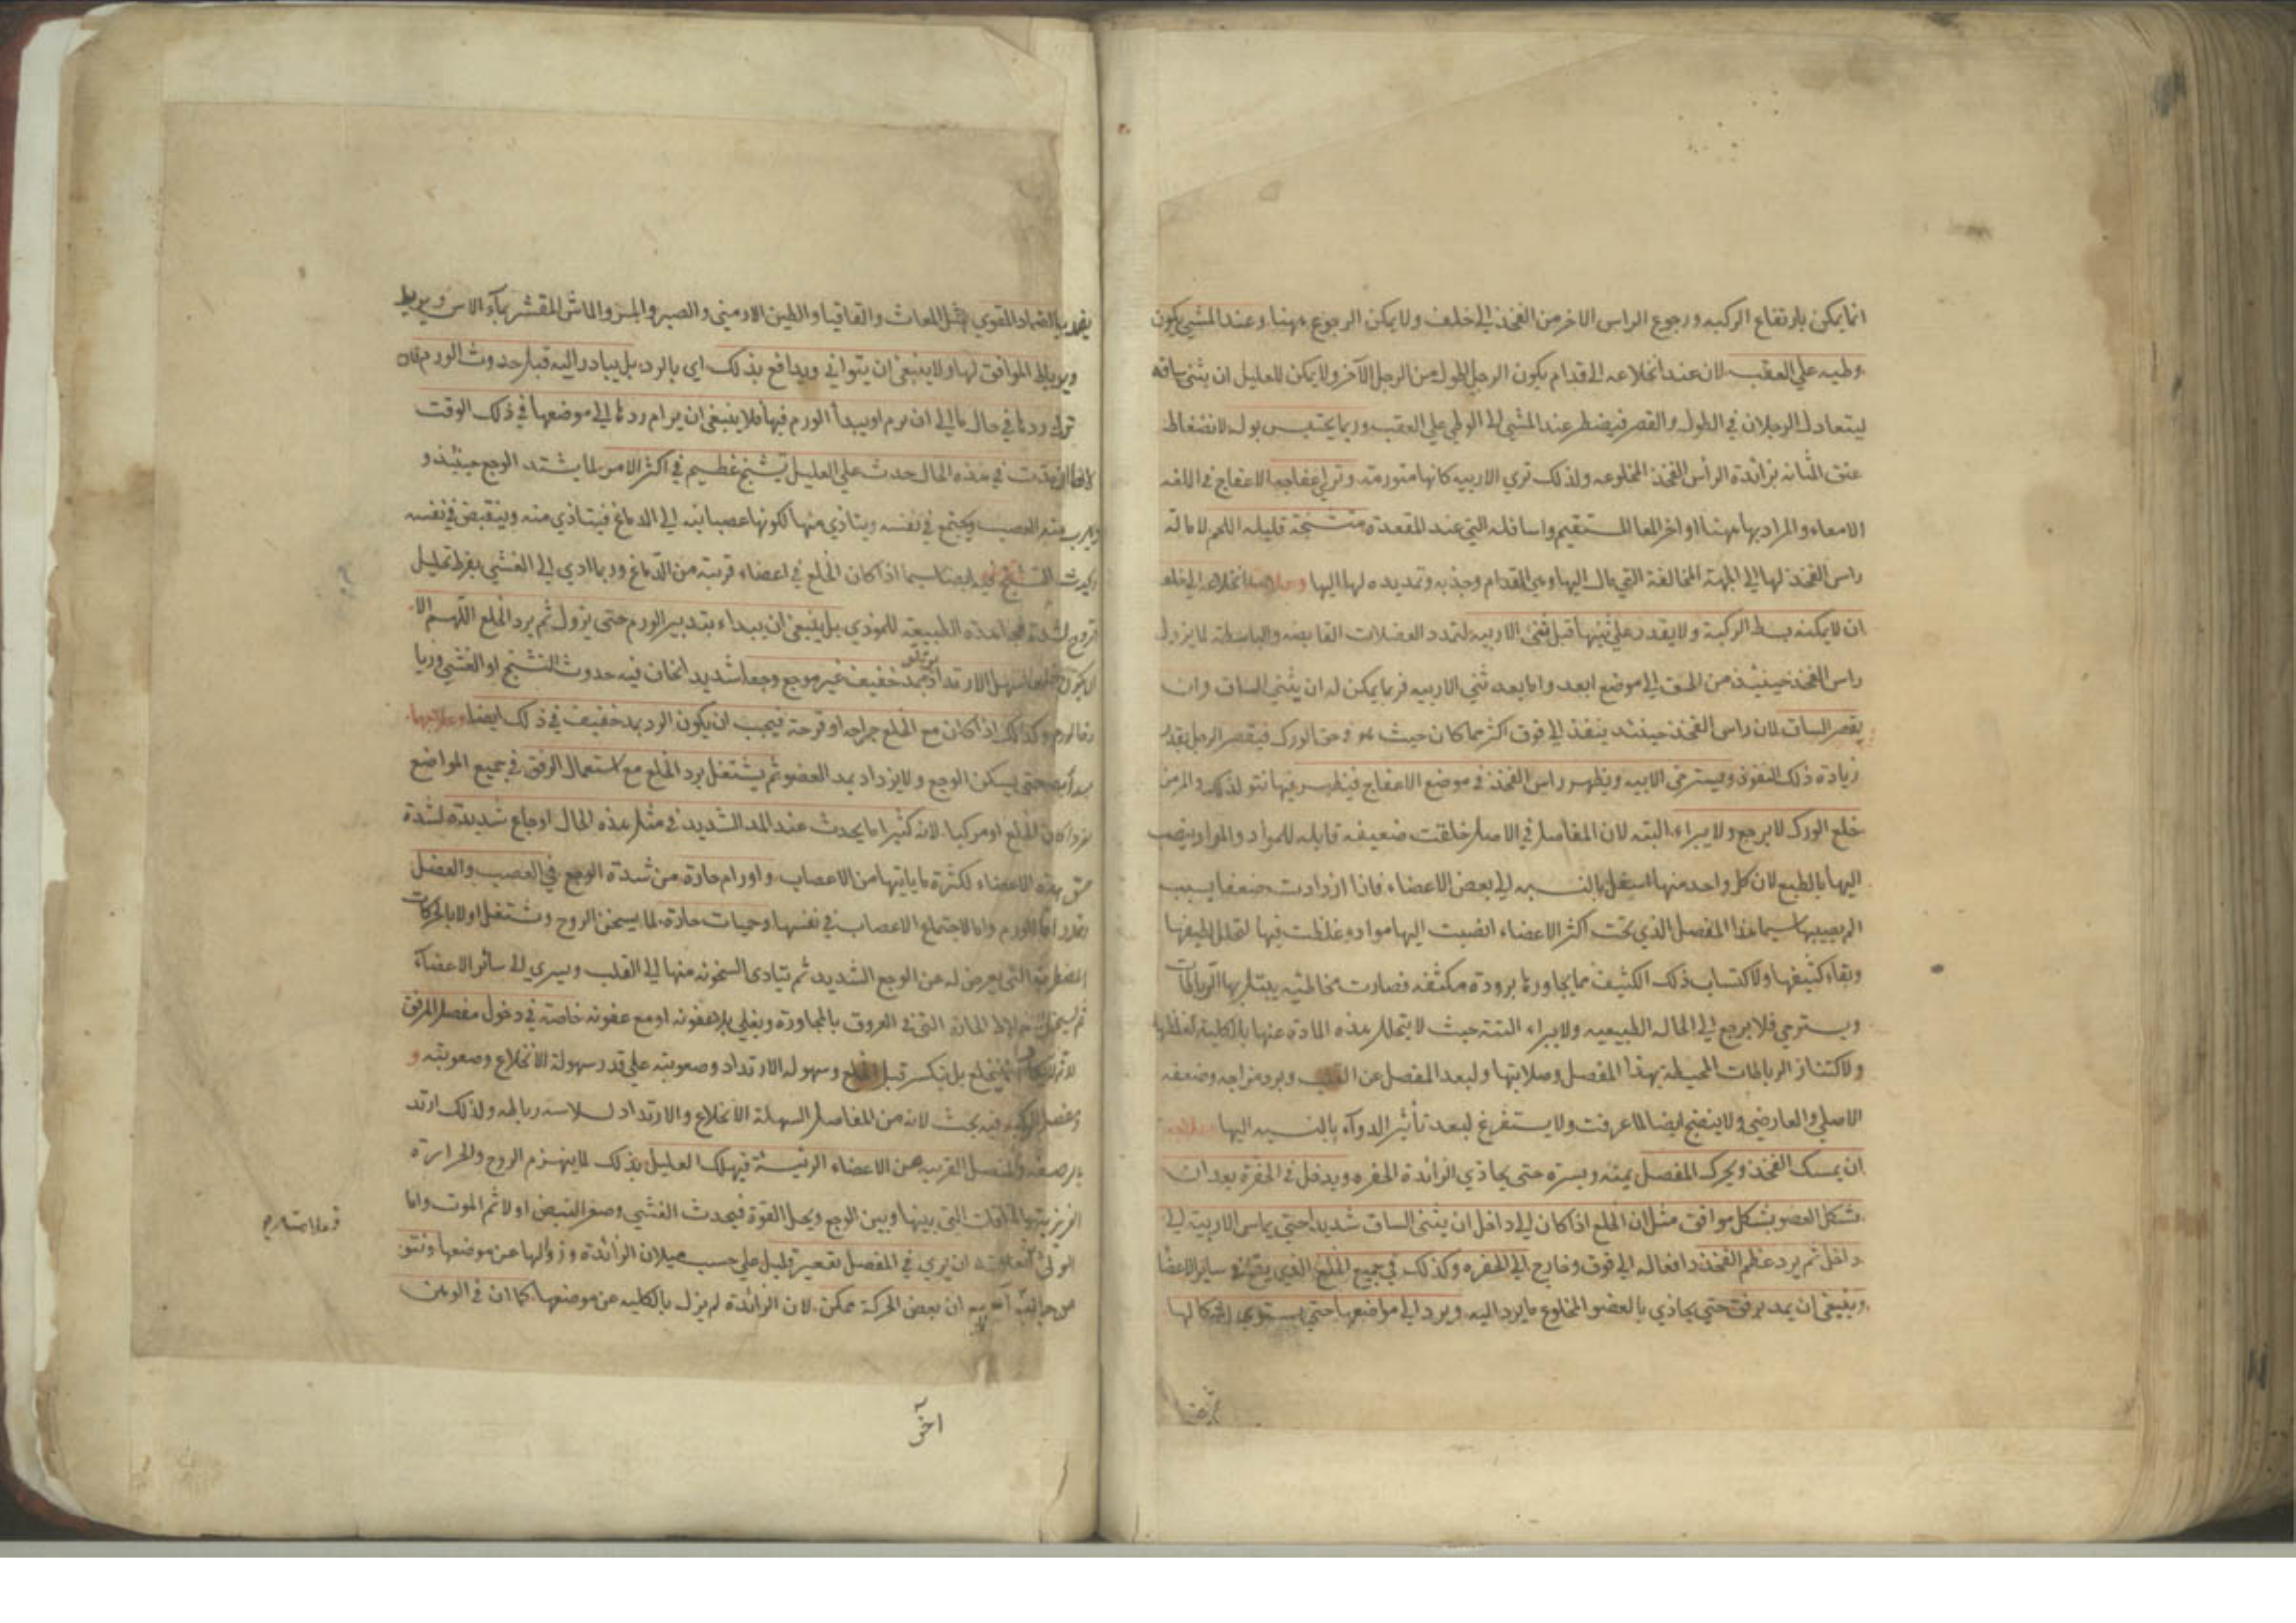 انما يمكن بارتفاع الركبه ورجوع الراس الاخر من الفخذ الي خلف ولا يمكن الرجوع ههنا وعند المشي يكون
وطيه علي العقب لان عند انخلاعه الي قدام يكون الرجل اطول من الرجل الآخر ولا يمكن للعليل ان يثني ساقه
ليتعادل الرجلان في الطول والقصر فيضطر عند المشي الي الوطي علي العقب وربما يحتبس بوله لانضغاط
عنق المثانه بزائدة الرأس الفخذ المخلوعه ولذلك تري الاربيه كانها متورمة وتري اعفاجه الاعفاج في اللغه
الامعاء والمراد بها ههنا اواخر المعا المستقيم واسافله التي عند المقعدة متشنجة قليله اللحم لامالة
راس الفخذ لها الي الجهة المخالفة التي مال اليها وهي القدام وجذبه وتمديده لها اليها وعلامة انخلاعه الي خلف
ان لا يمكنه بسط الركبة ولا يقدر علي ثنيها قبل ثني الاربيه لتمدد العضلات القابضه والباسطة لما يزول
راس الفخذ حينئذ من الحق الي موضع ابعد واما بعد ثني الاربيه فربما يمكن له ان يثني الساق وان
يقصر الساق لان راس الفخذ حينئذ ينفذ الي فوق اكثر مما كان حيث هو في حق الورك فيقصر الرجل بقدر
زيادة ذلك النفوذ ويسترخي الاربيه ويظهر راس الفخذ في موضع الاعفاج فيظهر فيها نتو لذلك والمزمن
خلع الورك لا يرجع ولا يبراء البته لان المفاصل في الاصل خلقت ضعيفه قابله للمواد والمواد ينصب
اليها بالطبع لان كل واحد منها اسفل بالنسبه الي بعض الاعضاء فاذا ازدادت ضعفا بسبب
الم يصيبها سيما هذا المفصل الذي تحت اكثر الاعضاء انصبت اليها مواد وغلظت فيها لتحلل لطيفها
وبقاء كثيفها ولاكتساب ذلك الكثيف مما يجاورها برودة مكثفه فصارت مخاطيه يبتل بها الرباطات
ويسترخي فلا يرجع الي الحاله الطبيعيه ولا يبراء البتة حيث لا يتحلل هذه المادة عنها بالكلية لغلظها
ولاكتناز الرباطات المحيطة بهذا المفصل وصلابتها ولبعد المفصل عن القلب وبرد مزاجه وضعفه
الاصلي والعارضي ولا ينضج ايضا لما عرفت ولا يستفرغ لبعد تأثير الدوآء بالنسبه اليها
ان يمسك الفخذ ويحرك المفصل يمنه ويسرة حتي يحاذي الزائدة الحفره ويدخل في الحفرة بعد ان
يشكل العضو بشكل موافق مثل ان الخلع اذا كان الي داخل ان يثني الساق شديدا حتي يماس الاربية الي
داخل ثم يرد عظم الفخذ دافعا له الي فوق وخارج الي الحفره وكذلك في جميع الخلع الذي يقع في ساير الاعضا
وينبغي ان يمد برفق حتي يحاذي بالعضو المخلوع ما يرد اليه ويرد الي مواضعها حتي يستوي اشكالها
بالضماد المقوي مثل المغاث والقاقيا والطين الارمني والصبر والمر والماش المقشر بمآء الاس ويربط
ويربط الموافق لها ولا ينبغي ان يتواني ويدافع بذلك اي بالرد بل يبادر اليه قبل حدوث الورم فان
ترك ردها في حال ما الي ان يرم او يبدأ الورم فيها فلا ينبغي ان يرام ردها الي موضعها في ذلك الوقت
في هذه الحال حدث علي العليل تشنج عظيم في اكثر الامر لما يشتد الوجع حينئذ و
العصب ويجتمع في نفسه ويتأذي منها لكونها عصبانيه الي الدماغ فيتأذي منه وينقبض في نفسه
التشنج ايضا سيما اذا كان الخلع في اعضاء قريبة من الدماغ وربما ادي الي الغشي بفرط تحليل
الروح لشدة مجاهدة الطبيعه للموذي بل ينبغي ان يبداء بتدبير الورم حتي يزول ثم يرد الخلع اللهم الا
سهل الارتداد بمد خفيف غير موجع وجعا شديدا نخاف فيه حدوث التشنج او الغشي وربما
وكذلك اذا كان مع الخلع جراحه او قرحة فيجب ان يكون الرد بمد خفيف في ذلك ايضا وعلاجها
حتي يسكن الوجع ولا يزداد بمد العضو ثم يشتغل برد الخلع مع استعمال الرفق في جميع المواضع
كان الخلع او مركبا لانه كثيرا ما يحدث عند المد الشديد في مثل هذه الحال اوجاع شديدة لشدة
هذه الاعضاء لكثرة ما يأتيها من الاعصاب واورام حارة من شدة الوجع في العصب والعضل
واما لاجتماع الاعصاب في نفسها وحميات حادة لما يسخن الروح وتشتعل اولا بالحركات
التي يعرض له عن الوجع الشديد ثم يتادي السخونه منها الي القلب ويسري الي سائر الاعضآء
الحارة التي في العروق بالمجاورة ويغلي بلا عفونه او مع عفونه خاصة في دخول مفصل المرفق
ينخلع بل ينكسر قبل الخلع وسهوله الارتداد وصعوبته علي قدر سهولة الانخلاع وصعوبته و
فيه بحث لانه من المفاصل السهلة الانخلاع والارتداد لسلاسه رباطه ولذلك ارتد
القريبه من الاعضاء الرئيسة فيهلك العليل بذلك لما ينهزم الروح والحرارة
التي بينها وبين الوجع ويحل القوة فيحدث الغشي وصغر النبض اولا ثم الموت واما
ان يري في المفصل تقعير قليل علي حسب ميلان الزائدة وزوالها عن موضعها ونتو
من جانب آخر مع ان بعض الحركة ممكن لان الزائدة لم يزل بالكليه عن موضعها كما ان في الوهن
آخر